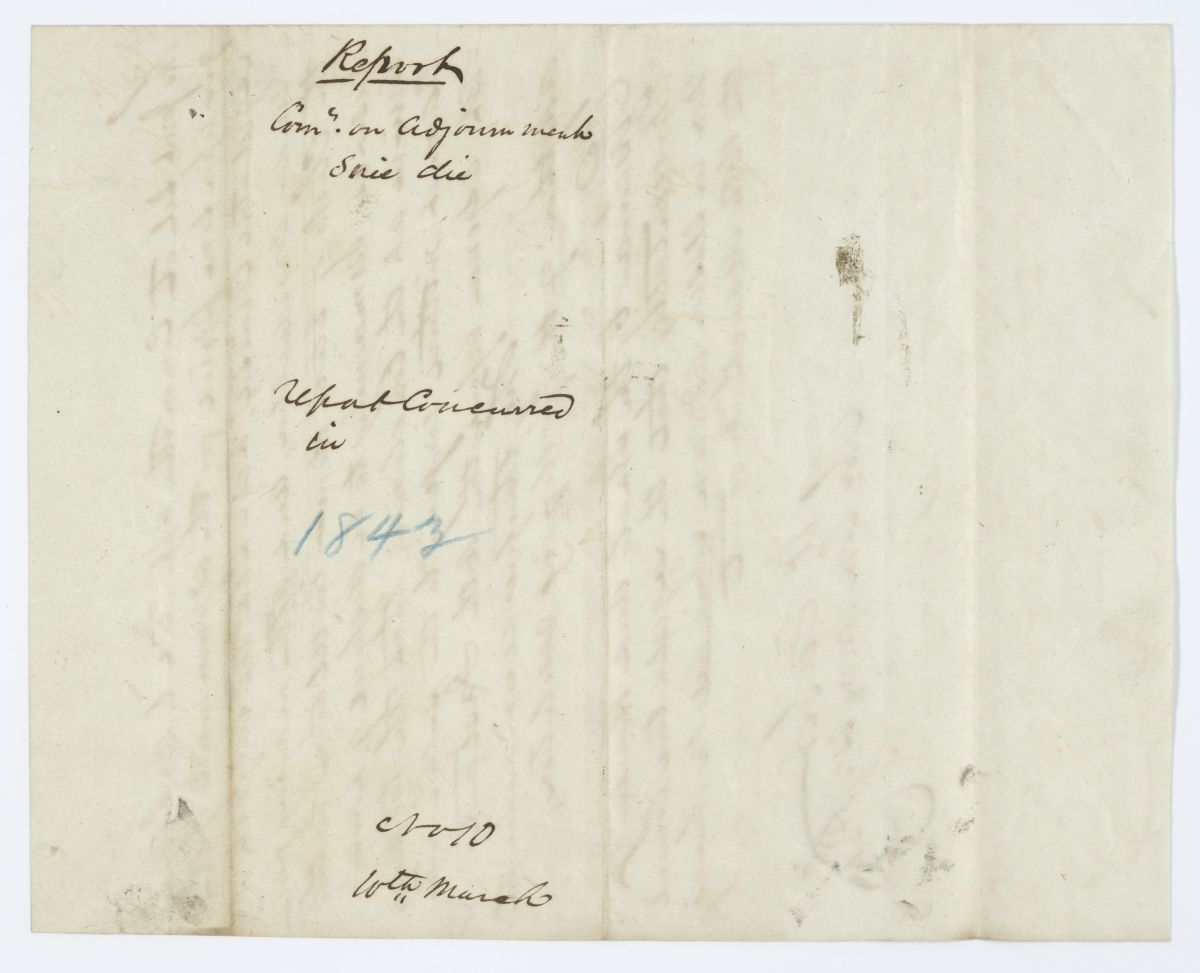 Report
Comᵉ. on Adjournment
Snie die
report Concurred
in
1843
No 10
10th March